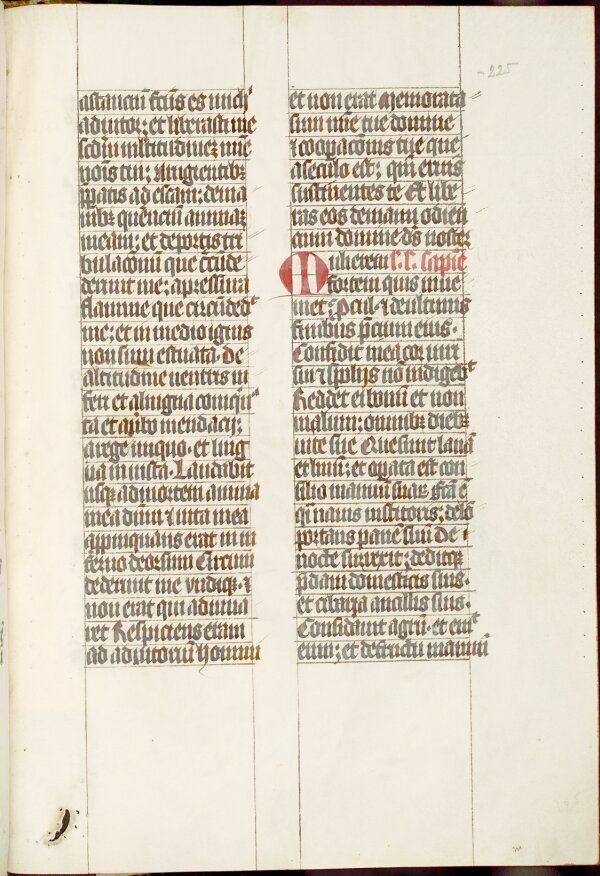 -225
astantiū fcūs es mich
adiutor; et liberasti me
scdm multitudinē mīe
nois tui; A rugientibȝ
ppatis ad escam; de ma
nibȝ querenciū animaȝ
meam; et de portis tri
bulacōnū que ccūde
derunt me; a pressura
flamme que circūdedᵗ
me; et in medio ignis
non sum estuata. De
altitudine uentris in
feri et a lingua coinqīᵃ
ta et a ūbo mendacij;
a rege iniquo. et ling
ua iniusta. Laudabit
usqȝ ad mortem anima
mea dūm ⁊ uita mea
appinquans erat in in
ferno deorsum Circum
dederunt me undiqȝ. ⁊
non erat qui adiuua
ret Respiciens eram
ad adiutoriū homīnū
et non erat Memorata
sum mīe tue domine
⁊ cooꝑacōnis tue que
a seculo est; qm̄ eruis
sustinentes te Et libe
ras eos de manu odien
cium domine ds̄ noster
Mulierem l. l. sapiē
fortem quis inue
niet; Procul ⁊ de ultimis
finibus p̄cium eius.
Confidit in ea cor uiri
sui ⁊ spolijs nō indigebᵗ
Reddet ei bonū et non
malum; omnibȝ diebȝ
uite sue Quesiuit lanā
et linū; et opata est con
silio manuū suaȝ fcā ē
qi nauis institoris; de lōg
portans panē suū De
nocte surrexit; deditqȝ
p̄dam domesticis suis.
et cibaria ancillis suis.
Considauit agrū. et emᵗ
eum; et de fructu manuū